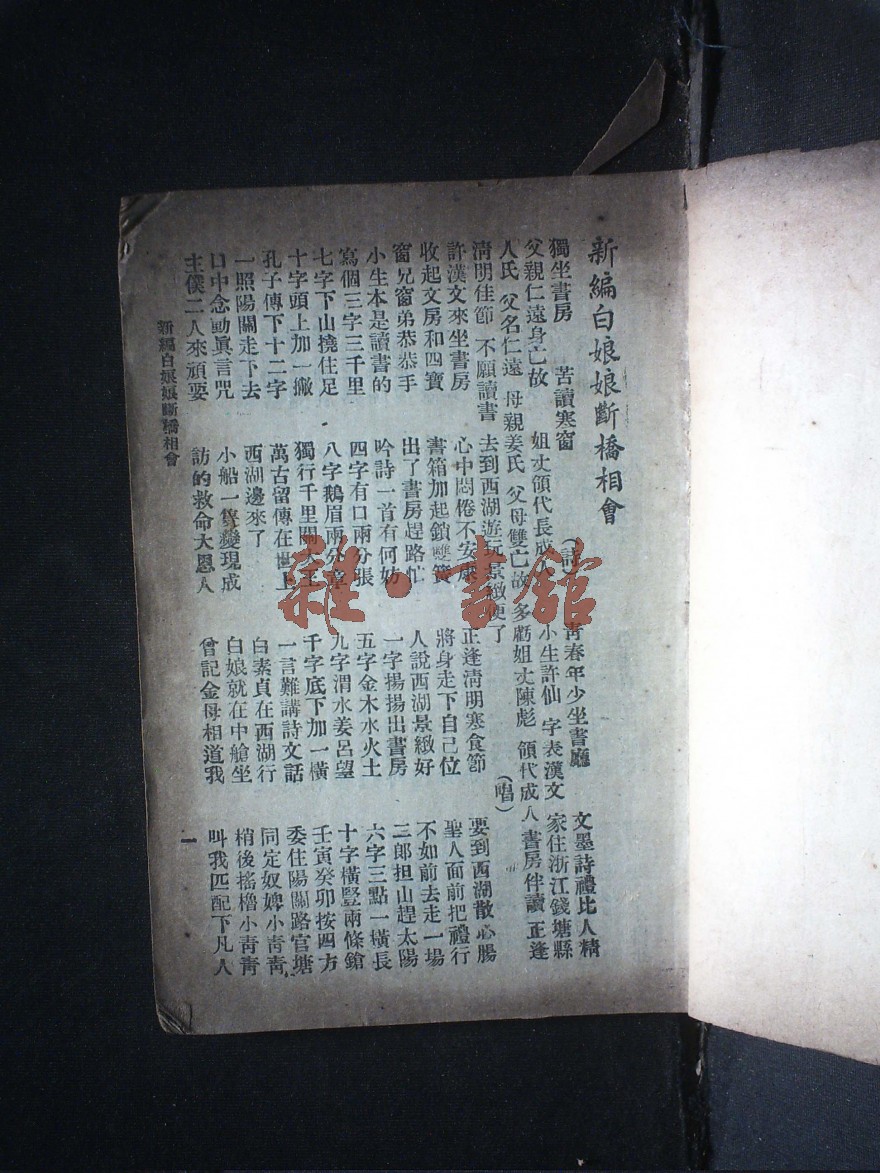 新編白娘娘斷橋相會
獨坐書房　苦讀寒窗　(詩)　青春年少坐書廳　文墨詩禮比人精
父親仁遠身亡故　姐丈領代長成　小生許仙　字表漢文　家住浙江錢塘縣
人氏　父名仁遠　母親姜氏　父母雙亡故　多虧姐丈陳彪　領代成人　書房伴讀　正逢
清明佳節　不願讀書　去到西湖遊玩景緻便了　(唱)
許漢文來坐書房　心中悶倦不安康　正逢清明寒食節　要到西湖散心腸
收起文房和四寶　書箱加起鎖雙簧　將身走下自己位　聖人面前把禮行
窗兄窗弟恭恭手　出了書房趕路忙　人說西湖景緻好　不如前去走一場
小生本是讀書的　吟詩一首有何妨　一字揚揚出書房　三郎担山趕太陽
寫個三字三千里　四字有口兩分張　五字金木水火土　六字三點一橫長
七字下山撓住足　八字鵝眉兩分章　九字渭水姜呂望　十字橫豎兩條鎗
十字頭上加一撇　獨行千里關大王　千字底下加一橫　壬寅癸卯按四方
孔子傳下十二字　萬古留傳在世上　一言難講詩文話　委住陽關路官塘
一照陽關走下去　西湖邊來了　白素貞在西湖行　同定奴婢小青青
口中念動眞言咒　小船一變現成　白娘就在中艙坐　梢後搖櫓小青青
主僕二人來頑耍　訪的救命大恩人　曾記金母相道我　叫我匹配下凡人
新編白娘娘斷橋相會　一
雜·書館